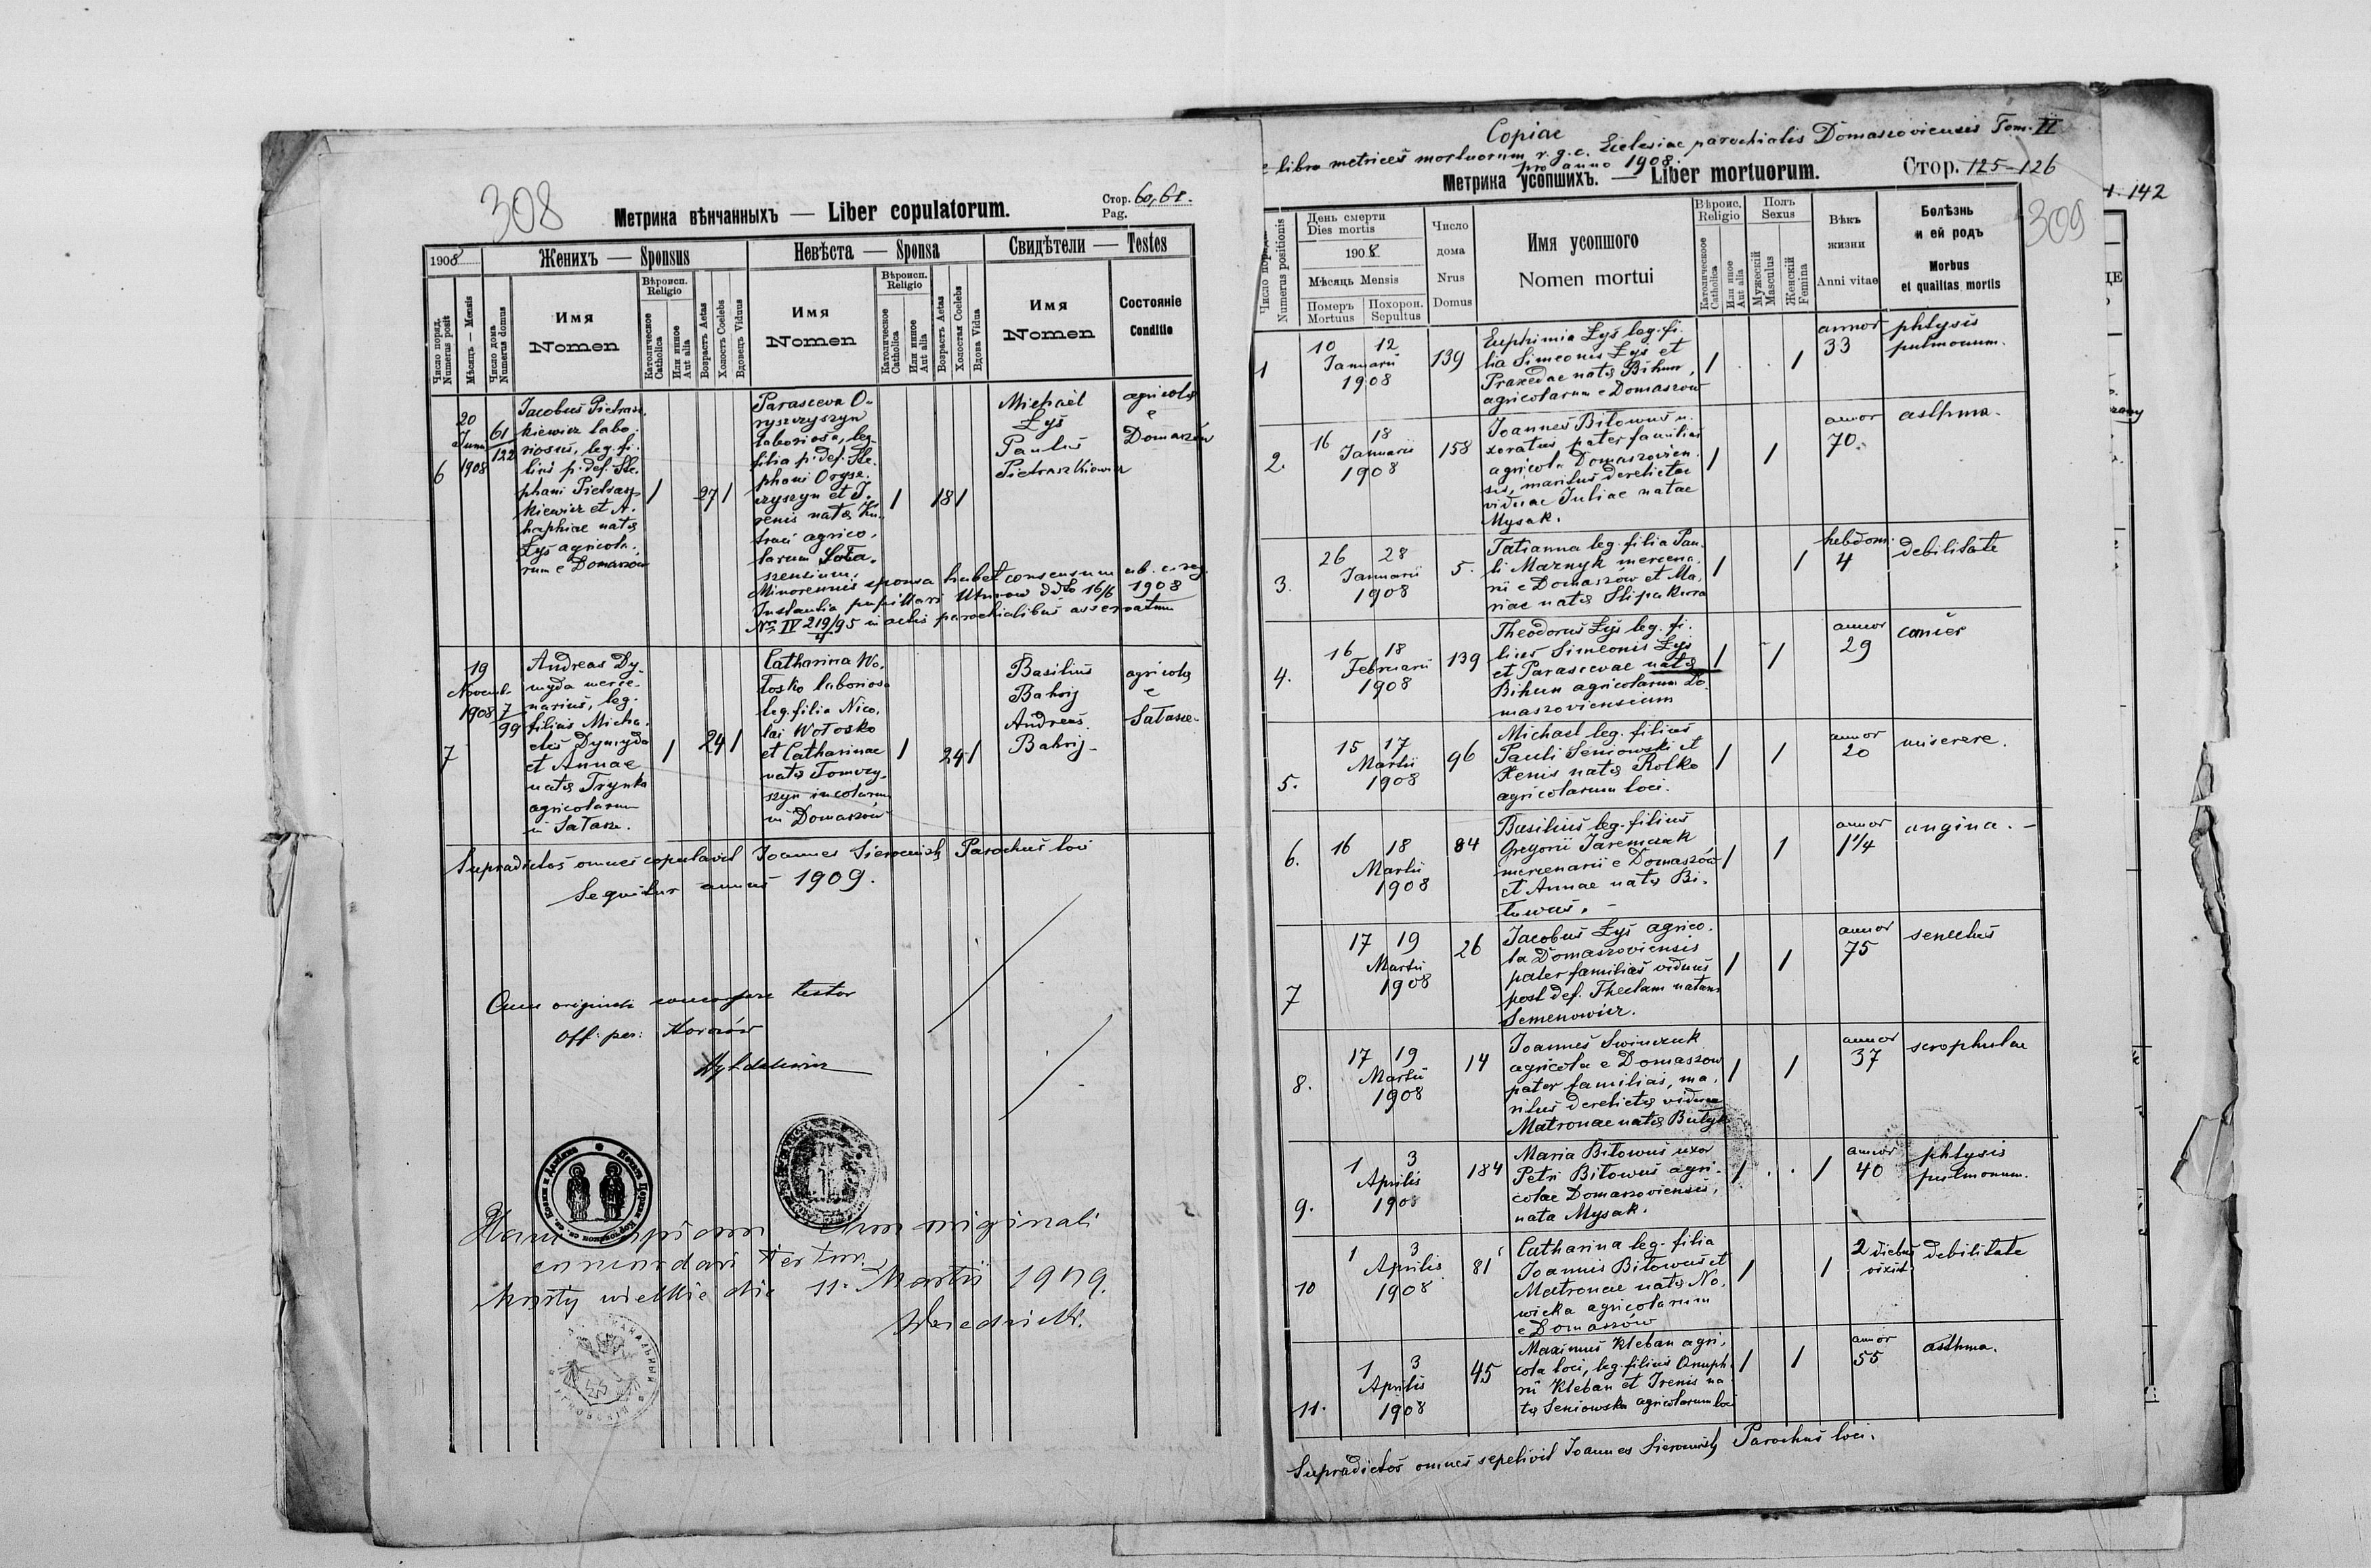 308
Метрика вѣнчанныхъ — Liber copulatorum.
Стор. 60, 61.
Pag.
1908
Женихъ — Sponsus
Невѣста — Sponsa
Свидѣтели — Testes
Число поряд.
Numerus posit
Мѣсяць — Mensis
Число дома
Numerus domus
Имя
Nomen
Вѣроисп.
Religio
Католическое
Catholica
Или иное
Aut alia
Возрастъ Aetas
Холостъ Coelebs
Вдовецъ Viduus
Имя
Nomen
Вѣроисп.
Religio
Католическое
Catholica
Или иное
Aut alia
Возрастъ Aetas
Холостая Coelebs
Вдова Vidua
Имя
Nomen
Состояніе
Conditio
6
20
Junii
1908
61
122
Jacobus Pietrasz-
kiewicz labo-
riosus, leg. fi-
lius p. def. Ste-
phani Pietrasz-
kiewicz et A-
haphiae natę
Łyś agricola-
rum e Domaszów
/
27 /
Parasceva O-
ryszczyszyn
laboriosa, leg.
filia p. def. Ste-
phani Orysz-
czyszyn et I-
renis natę
agrico-
larum Sała-
szensium.
/
18 /
Michaël
Łyś
Paulus
Pietraszkiewicz
agricolę
e
Domaszów
Minorennis sponsa habet consensum ab c. reg.
Instantia pupillari Uhnow ddto 16/6 1908
Nro IV 219/95 in actis parochialibus asservatum
4
7
19
Novemb.
1908
7
99
Andreas Dy-
myda merce-
narius, leg.
filius Micha-
elis Dymyda
et Annae
natę Trynka
agricolarum
in Sałasze.
/
24 /
Catharina Wo-
łosko laboriosa
leg. filia Nico-
lai Wołosko
et Catharinae
natę Tomczy-
szyn incolarum
in Domaszów
/
24 /
Basilius
Bahrij
Andreas
Bahrij
agricolę
e
Sałasze
Supradictos omnes copulavit Joannes Sierociński Parochus loci
Sequitur annus 1909.
Cum originali concordare testor
Off. par.
Hanc copiam cum originali
concordari testor.
Mosty wielkie die 11. Martii 1909.
Copiae
e libro metrices mortuorum r. g. c. Ecclesiae parochialis Domaszoviensis Tom. II
pro anno 1908.
Метрика усопшихъ. — Liber mortuorum.
Стор. 125-126
142
309
Numerus positionis
День смерти
Dies mortis
1908.
Мѣсяць Mensis
Померъ
Mortuus
Похорон.
Sepultus
Число
дома
Nrus
Domus
Имя усопшого
Nomen mortui
Вѣроис.
Religio
Католическоое
Catholica
Или иное
Aut alia
Полъ
Sexus
Мужескій
Masculus
Женскій
Femina
Вѣкъ
жизни
Anni vitae
Болѣзнь
и ей родъ
Morbus
et qualitas mortis
1
10 12
Januarii
1908
139
Euphimia Łyś leg. fi-
lia Simeonis Łyś et
Praxedae natę Bihun,
agricolarum e Domaszow
/ . . /
annor
33
phtysis
pulmonum.
2.
16 18
Januarii
1908
158
Joannes Biłowus u-
xoratus pater familias
agricola Domaszovien-
sis, maritus derelictae
viduae Juliae natae
Mysak.
/ /
annor
70.
asthma.
3.
26 28
Januarii
1908
5.
Tatianna leg. filia Pau-
li Maznyk mercena-
rii e Domaszów et Ma-
riae natę
/ /
hebdom.
4
debilitate
4.
16 18
Februarii
1908
139
Theodorus Łyś leg. fi-
lius Simeonis Łyś
et Parascevae natę
Bihun agricolarum Do-
maszoviensium
/ /
annor
29
5.
15 17
Martii
1908
96
Michael leg. filius
Pauli Seniowski et
Xenis natę Rolko
agricolarum loci.
/ /
annor
20
miserere.
6.
16 18
Martii
1908
84
Basilius leg. filius
Gregorii Jaremczuk
mercenarii e Domaszów
et Annae natę Bi-
łowus. -
/ /
annor
1 1/4
angina. -
7
17 19
Martii
1908
26
Jacobus Łyś agrico-
la Domaszoviensis
pater familias viduus
post def. Theclam natam
Semenowicz.
/ /
annor
75
senectus
8.
17 19
Martii
1908
14
Joannes Swinczuk
agricola e Domaszow
pater familias, ma-
ritus derelictę viduae
Matronae natę Bułyk
/ /
annor
37
scrophulae
9.
1 3
Aprilis
1908
184
Maria Biłowus uxor
Petri Biłowus agri-
colae Domaszoviensis,
nata Mysak.
/ . . /
annor
40
phtysis
pulmonum.
10
1 3
Aprilis
1908
81
Catharina leg. filia
Joannis Biłowus et
Matronae natę No-
wicka agricolarum
e Domaszów
/ /
2 diebus
vixit
debilitate
11.
1 3
Aprilis
1908
45
Maximus Kleban agri-
cola loci, leg. filius Onuph-
rii Kleban et Irenis na-
tę Seniowska agricolarum loci
/ /
annor
55
asthma.
Supradictos omnes sepelivit Joannes Sierociński Parochus loci.